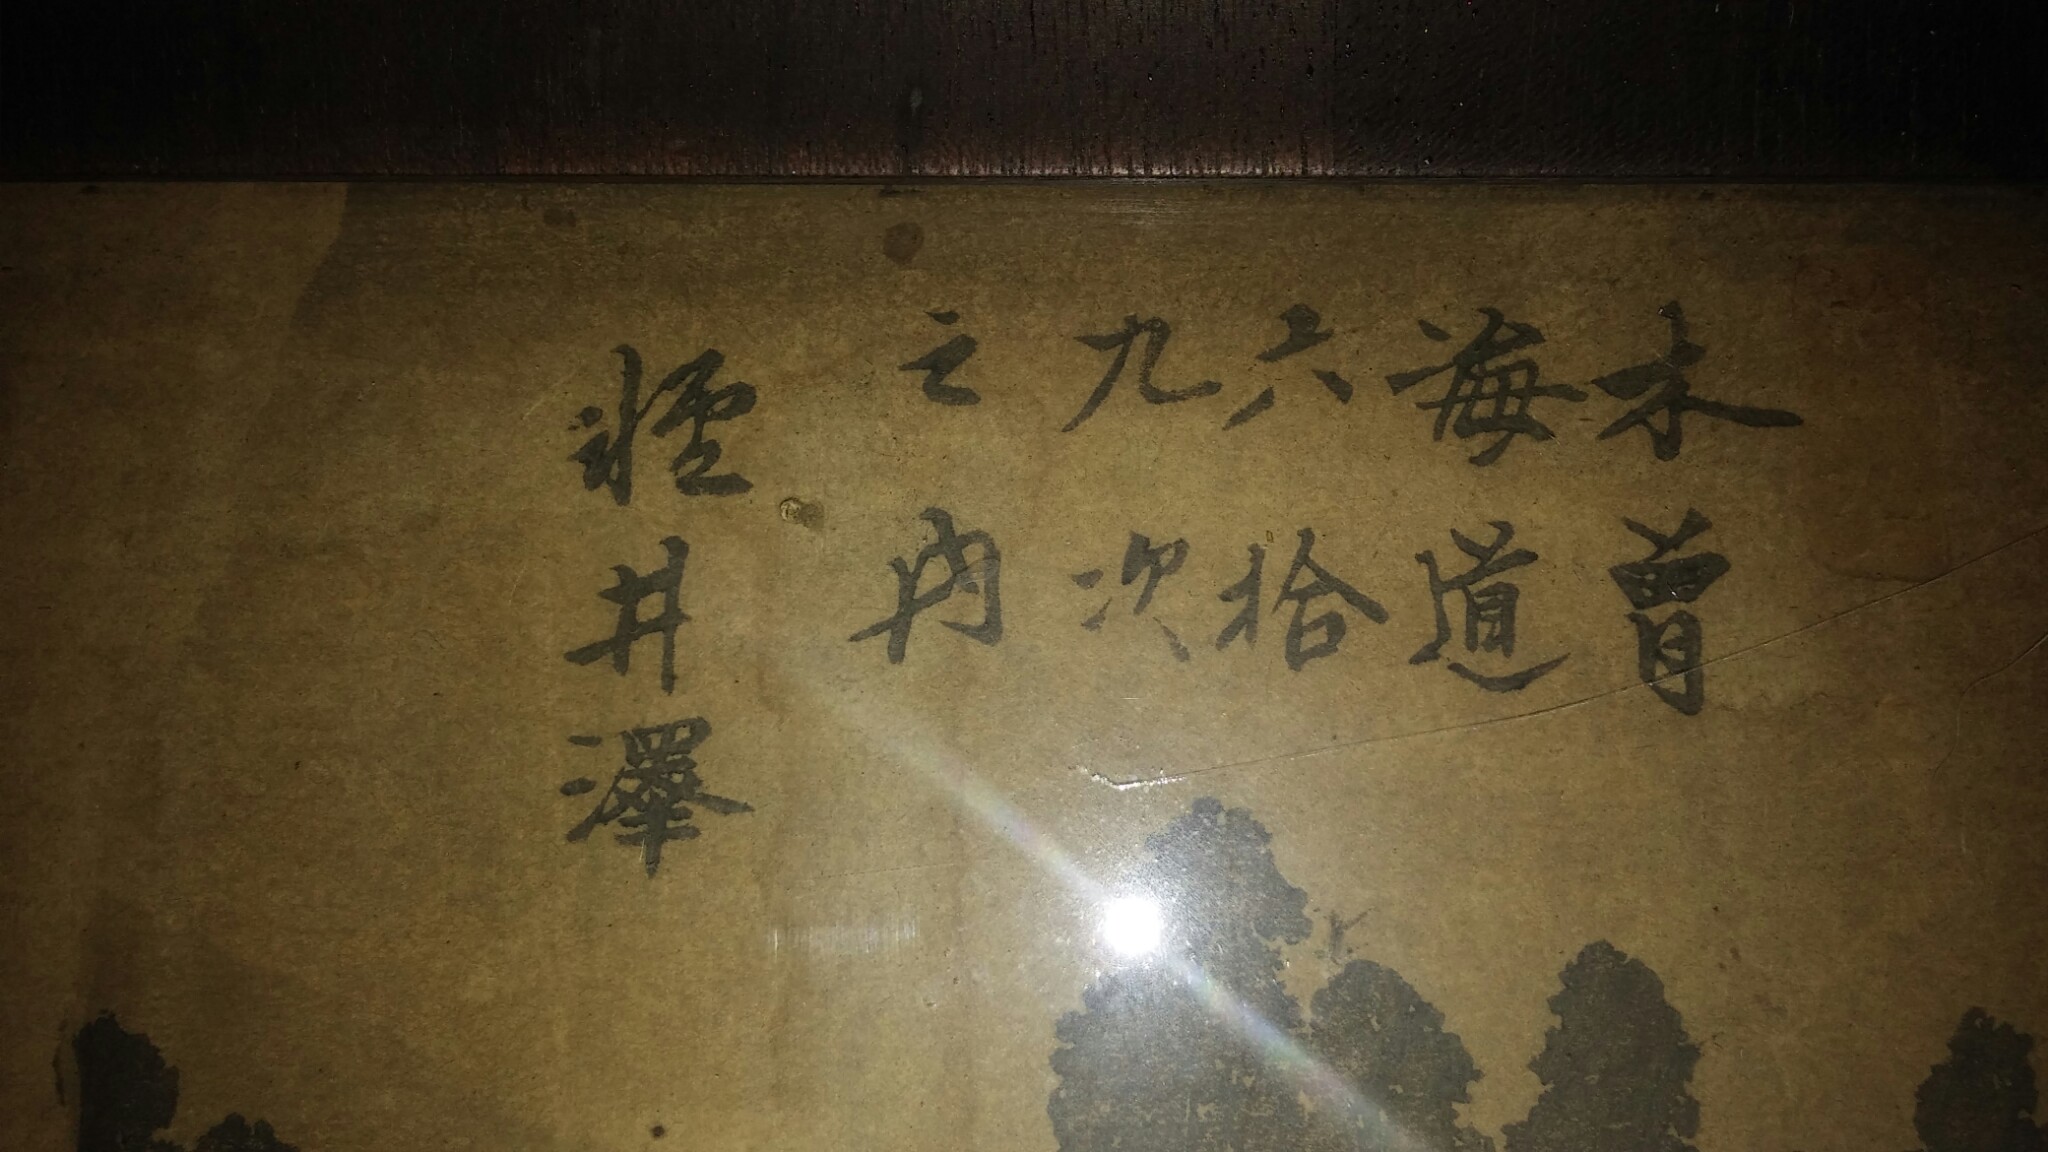 木曽
海道
六拾
九次
之内
軽井澤